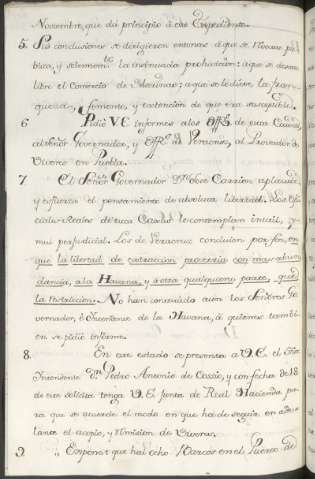 Noviembre, que dá principio á este Expediente.
5. Sus conclusiones se dirigieron entonces á que se Novase pub
lica, y solemnemte la insinuada prohivicion: á que se decreta
libre el comercio de Harinas; á que se le diese la fran
queza, fomento, y extencion de que era susceptible.
6 Pidió V.E. informes alos Offs. de estas Caxas,
al Señor Governador, y Offs. Rs. de Veracruz, al Proveedor de
Viveres en Puebla.
7 El Señor Governador Dn. Josè Carrion aplaude,
y esfuerza el pensamiento de absoluta libertad. Los Ofi
ciales Reales de estas Caxas le contemplan inutil, y
mui perjudicial. Los de Veracruz concluien por fin, en
que la libertad de extraccion proveeria con mas abun
dancia, ala Havana, y á otra qualquiera parte, que
la Provision. No han contextado aún los Señores Go
vernador, è Intendente de la Havana, á quienes tambi
en se pidio informe.
8. En este estado se presenta á V.E. el Señor
Intendente Dn. Pedro Antonio de Cosio, y con fecha de 18
de èste solicita tenga V.E. Junta de Real Hacienda pa
ra que se acuerde el modo en que ha de seguir en ade
lante el acopio, y remision de Viveres.
9. Expone: que hai ocho Barcos en el Puerto de